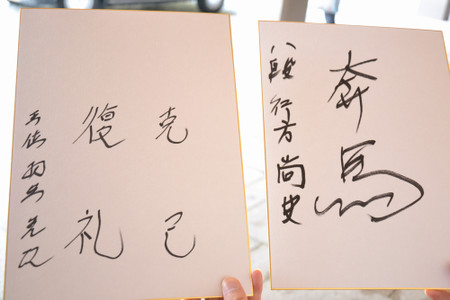 克己
復礼
王位 羽生善治
奔馬
八段 行方尚史